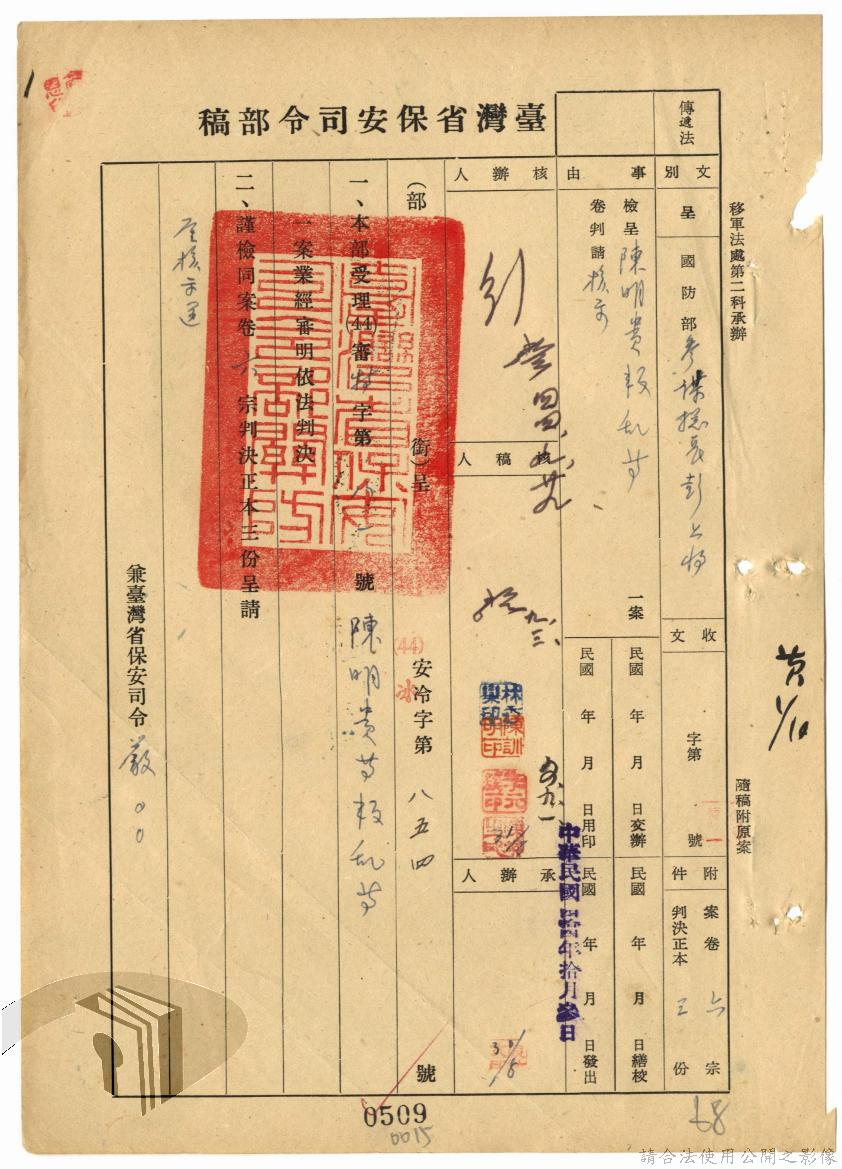 臺灣省保安司令部稿
傳遞法
移軍法處第二科承辦
隨稿附原案
文別
呈
國防部參謀總長彭上將
收文
字第
號
附件
案卷 六 宗
判決正本 三 份
事由
檢呈陳明貴叛乱等一案
卷判請核示
民國 年 月 日交辦
民國 年 月 日繕校
民國 年 月 日用印
民國 年 月 日發出
中華民國 年拾月 日
核辦人
核稿人
承辦人
(部 銜)呈
(44)安冷字第 八五四 號
一、本部受理(44)審特字第 號陳明貴等叛乱等
一案業經審明依法判決
二、謹檢同案卷六宗判決正本三份呈請
核示
兼臺灣省保安司令嚴○○
0509
0015
68
請合法使用公開之影像